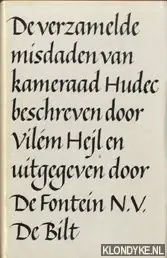 De verzamelde
misdaden van
kameraad Hudec
beschreven door
Vilém Hejl en
uitgegeven door
De Fontein N.V.
De Bilt
KLONDYKE.NL